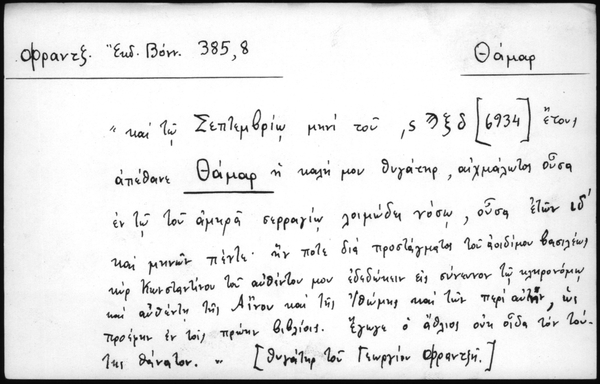 Φραντζ. Ἔκδ. Βόνν. 385,8 Θάμαρ
"καὶ τῷ Σεπτεμβρίῳ μηνὶ τοῦ ͵ϛϠξδ [6934] ἔτους
ἀπέθανε Θάμαρ ἡ καλή μου θυγάτηρ, αἰχμάλωτος οὖσα
ἐν τῷ τοῦ ἀμηρᾶ σερραγίῳ λοιμώδει νόσῳ, οὖσα ἐτῶν ιδ'
καὶ μηνῶν πέντε· ἥν ποτε διὰ προστάγματος τοῦ ἀοιδίμου βασιλέως
κὺρ Κωνσταντίνου τοῦ αὐθέντου μου ἐδεδώκειν εἰς σύνευνον τῷ κληρονόμῳ
καὶ αὐθέντῃ τῆς Αἴνου καὶ τῆς Ἰθώμης καὶ τῶν περὶ αὐτήν, ὡς
προέφην ἐν τοῖς πρώην βιβλίοις. Ἔγωγε ὁ ἄθλιος οὐκ οἶδα τὸν ταύ-
της θάνατον." [θυγάτηρ τοῦ Γεωργίου Φραντζῆ.]